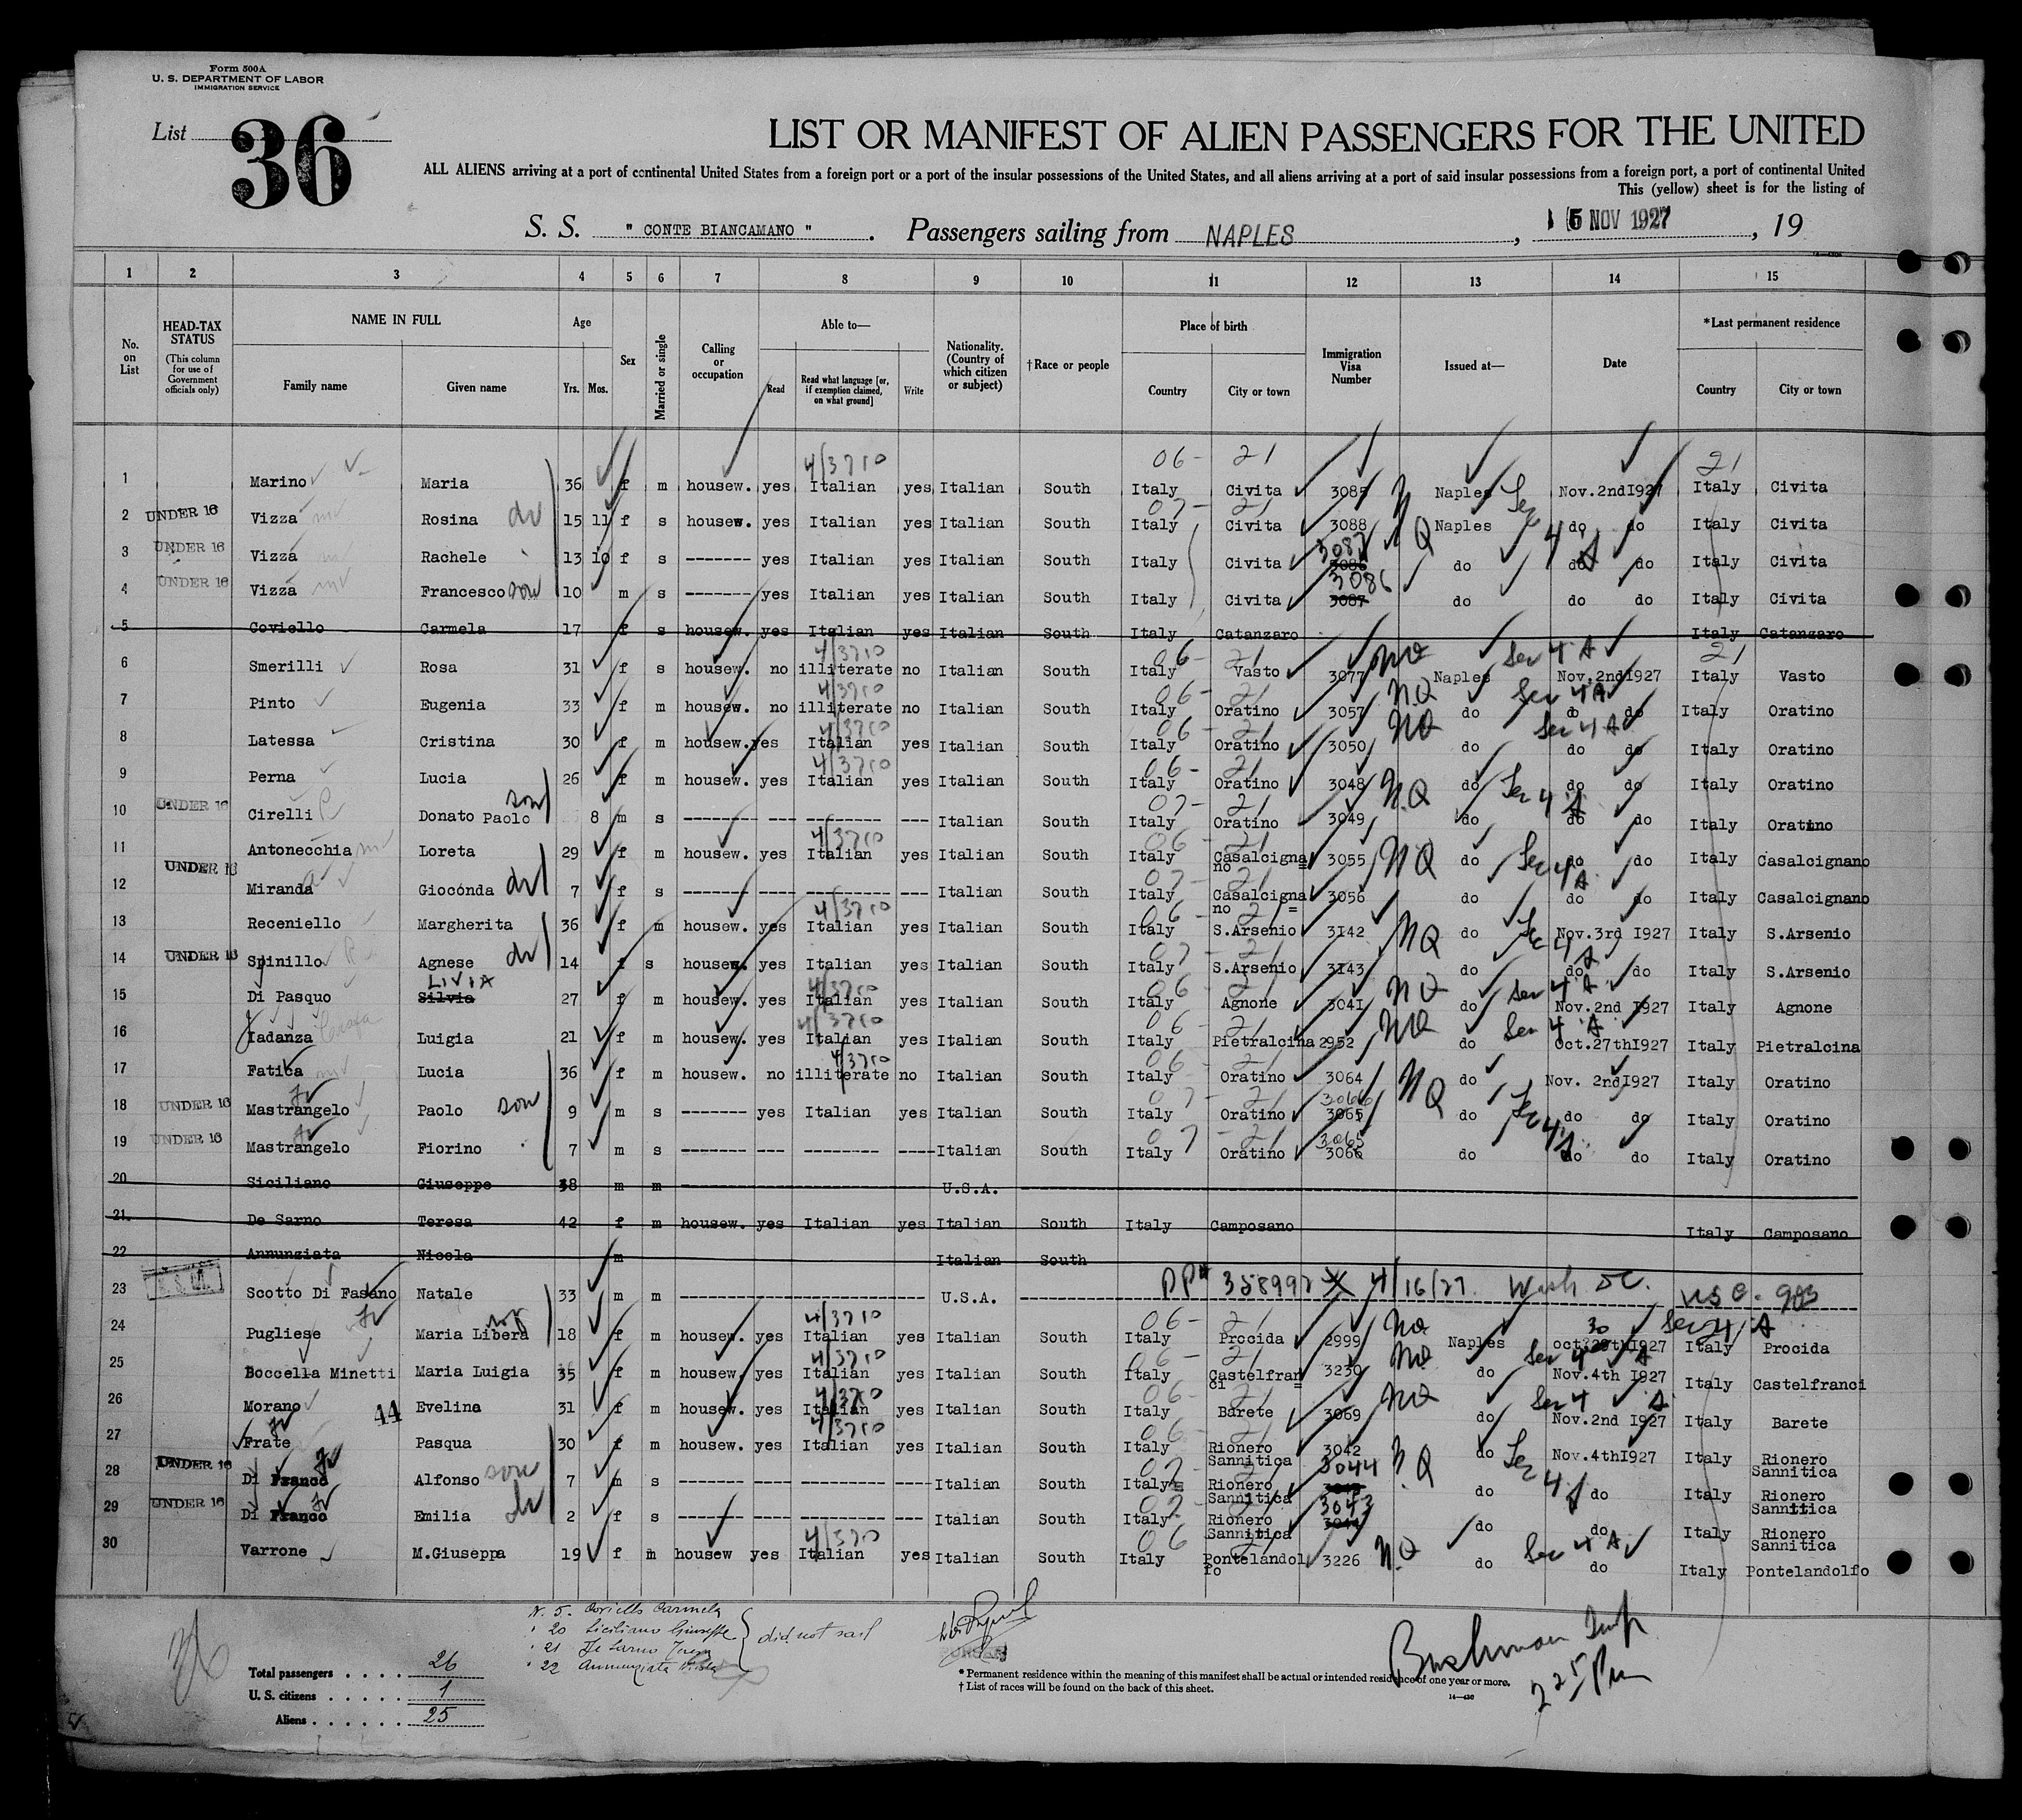 Form 500A
U. S. DEPARTMENT OF LABOR
IMMIGRATION SERVICE
List 36
LIST OR MANIFEST OF ALIEN PASSENGERS FOR THE UNITED
ALL ALIENS arriving at a port of continental United States from a foreign port or a port of the insular possessions of the United States, and all aliens arriving at a port of said insular possessions from a foreign port, a port of continental United
This (yellow) sheet is for the listing of
S. S. " CONTE BIANCAMANO " . Passengers sailing from NAPLES , 5 NOV 1927 , 19
1 2 3 4 5 6 7 8 9 10 11 12 13 14 15
No. on List
HEAD-TAX STATUS (This column for use of Government officials only)
NAME IN FULL Family name Given name
Age Yrs. Mos.
Sex
Married or single
Calling or occupation
Able to— Read Read what language [or, if exemption claimed, on what ground] Write
Nationality. (Country of which citizen or subject)
†Race or people
Place of birth Country City or town
Immigration Visa Number
Issued at—
Date
*Last permanent residence Country City or town
4/3710 06- 21 21
1 Marino Maria 36 f m housew. yes Italian yes Italian South Italy Civita 3085 Naples Nov.2ndI927 Italy Civita
2 UNDER 16 Vizza Rosina 15 11 f s housew. yes Italian yes Italian South Italy Civita 3088 NQ Naples Ser 4 A do do Italy Civita
3 UNDER 16 Vizza Rachele 13 10 f s ------- yes Italian yes Italian South Italy Civita 3087 3086 do do do Italy Civita
4 UNDER 16 Vizza Francesco son 10 m s ------- yes Italian yes Italian South Italy Civita 3086 3087 do do do Italy Civita
5 Coviello Carmela 17 f s housew. yes Italian yes Italian South Italy Catanzaro Italy Catanzaro
6 Smerilli Rosa 31 f s housew. no illiterate no Italian South Italy Vasto 3077 NQ Naples Ser 4 A Nov.2ndI927 Italy Vasto
7 Pinto Eugenia 33 f m housew. no illiterate no Italian South Italy Oratino 3057 NQ do Ser 4 A do do Italy Oratino
8 Latessa Cristina 30 f m housew. yes Italian yes Italian South Italy Oratino 3050 NQ do Ser 4 A do do Italy Oratino
9 Perna Lucia 26 f m housew. yes Italian yes Italian South Italy Oratino 3048 NQ do Ser 4 A do do Italy Oratino
10 UNDER 16 Cirelli Donato Paolo son 8 m s -------- --- --------- --- Italian South Italy Oratino 3049 do do do Italy Oratino
11 Antonecchia Loreta 29 f m housew. yes Italian yes Italian South Italy Casalcigna= no 3055 NQ do Ser 4 A do do Italy Casalcignano
12 UNDER 16 Miranda Giocónda 7 f s ------- ---- --------- --- Italian South Italy Casalcigna= no 3056 do do do Italy Casalcignano
13 Receniello Margherita 36 f m housew. yes Italian yes Italian South Italy S.Arsenio 3I42 NQ do Nov.3rd I927 Italy S.Arsenio
14 UNDER 16 Spinillo Agnese 14 f s housew. yes Italian yes Italian South Italy S.Arsenio 3I43 do do do Italy S.Arsenio
15 Di Pasquo LIVIA Silvia 27 f m housew. yes Italian yes Italian South Italy Agnone 304I NQ do Ser 4 A Nov.2nd I927 Italy Agnone
16 Iadanza Luigia 21 f m housew. yes Italian yes Italian South Italy Pietralcina 2952 NQ do Ser 4 A Oct.27thI927 Italy Pietralcina
17 Fatica Lucia 36 f m housew. no illiterate no Italian South Italy Oratino 3064 NQ do Nov. 2ndI927 Italy Oratino
18 UNDER 16 Mastrangelo Paolo son 9 m s ------- yes Italian yes Italian South Italy Oratino 3066 3065 do Ser 4 A do do Italy Oratino
19 UNDER 16 Mastrangelo Fiorino 7 m s ------- --- -------- ---- Italian South Italy Oratino 3065 3066 do do do Italy Oratino
20 Siciliano Giuseppe 38 m m U.S.A.
21 De Sarno Teresa 42 f m housew. yes Italian yes Italian South Italy Camposano Italy Camposano
22 Annunziata Nicola m Italian South
23 Scotto Di Fasano Natale 33 m m U.S.A. PP# 358992 4/16/27. Wash DC. USC.
24 Pugliese Maria Libera 18 f m housew. yes Italian yes Italian South Italy Procida 2999 NQ Naples 30 oct.29thI927 Ser 4 A Italy Procida
25 Boccella Minetti Maria Luigia 35 f m housew. yes Italian yes Italian South Italy Castelfran= ci 3239 NQ do Ser 4 A Nov.4th I927 Italy Castelfranci
26 Morano 44 Evelina 31 f m housew. yes Italian yes Italian South Italy Barete 3069 NQ do Ser 4 A Nov.2nd I927 Italy Barete
27 Frate Pasqua 30 f m housew. yes Italian yes Italian South Italy Rionero Sannitica 3042 NQ do Ser 4 A Nov.4thI927 Italy Rionero Sannitica
28 UNDER 16 Di Franco Alfonso son 7 m s ------- ---- --------- ---- Italian South Italy Rionero Sannitica 3044 do do Italy Rionero Sannitica
29 UNDER 16 Di Franco Emilia 2 f s ------- ---- --------- ---- Italian South Italy Rionero Sannitica 3043 do do Italy Rionero Sannitica
30 Varrone M.Giuseppa 19 f m housew yes Italian yes Italian South Italy Pontelandol fo 3226 NQ do Ser 4 A do Italy Pontelandolfo
N. 5. Coviello Carmela
" 20 Siciliano Giuseppe
" 21 De Sarno Teresa
" 22 Annunziata Nicola
did not sail
Total passengers . . . . 26
U. S. citizens . . . . . 1
Aliens . . . . . . 25
* Permanent residence within the meaning of this manifest shall be actual or intended residence of one year or more.
† List of races will be found on the back of this sheet.
14—430
Bushman Insp
2 25 Pm